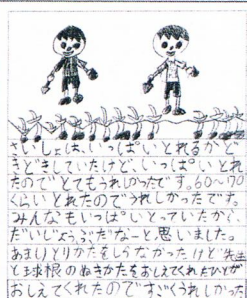 さいしょは、いっぱいとれるかど
きどきしていたけど、いっぱいとれ
たのでとてもうれしかったです。60～70
くらいとれたのでうれしかったです。
みんなもいっぱいとっていたから、
だいじょうぶだなーと思いました。
あまりとりかたをしらなかったけど先生
と球根のぬきかたをおしえてくれたひとが
おしえてくれたのですごくうれしかった